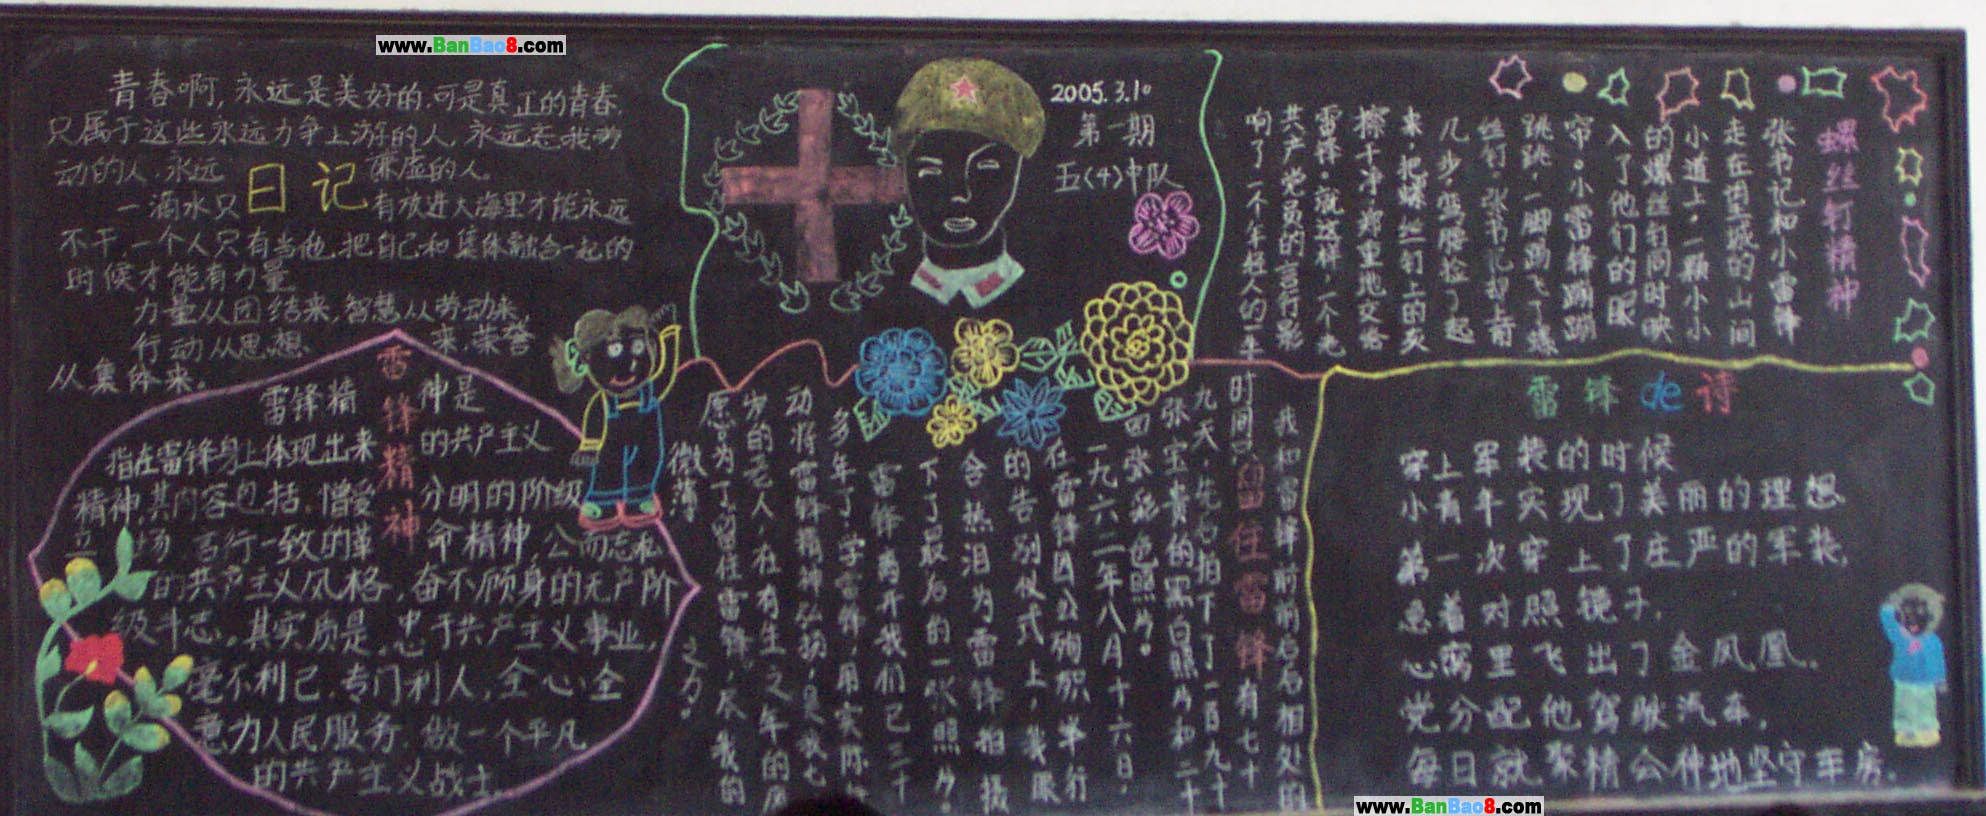 www.BanBao8.com
青春啊,永远是美好的,可是真正的青春,
只属于这些永远力争上游的人,永远忘我劳
动的人,永远谦虚的人。
日记
一滴水只有放进大海里才能永远
不干,一个人只有当他把自己和集体融合一起的
时候才能有力量
力量从团结来,智慧从劳动来,
行动从思想来,荣誉
从集体来。
雷锋精神
雷锋精神是
指在雷锋身上体现出来的共产主义
精神,其内容包括,憎爱分明的阶级
立场,言行一致的革命精神,公而忘私
的共产主义风格,奋不顾身的无产阶
级斗志。其实质是,忠于共产主义事业,
毫不利己,专门利人,全心全
意为人民服务,做一个平凡
的共产主义战士。
2005.3.10
第一期
五(4)中队
螺丝钉精神
张书记和小雷锋
走在团望城的山间
小道上,一颗小小
的螺丝钉同时映
入了他们的眼
帘。小雷锋蹦蹦
跳跳,一脚踢飞了螺
丝钉,张书记却上前
几步,弯腰捡了起
来,把螺丝钉上的灰
擦干净,郑重地交给
雷锋。就这样,一个老
共产党员的言行影
响了一个年轻人的一生
留住雷锋
我和雷锋前前后后相处的
时间只有七十
九天,先后拍下了一百九十
张宝贵的黑白照片和二十
四张彩色照片。
一九六二年八月十六日,
在雷锋因公殉职举行
的告别仪式上,我眼
含热泪为雷锋拍摄
下了最后的一张照片。
雷锋离开我们已三十
多年了,学雷锋,用实际行
动将雷锋精神弘扬,是我七
岁的老人,在有生之年的愿
愿为了留住雷锋,尽我的
微薄之力。
雷锋de诗
穿上军装的时候
小青年实现了美丽的理想
第一次穿上了庄严的军装,
急着对照镜子,
心窝里飞出了金凤凰。
党分配他驾驶汽车,
每日就聚精会神地坚守车房,
www.BanBao8.com